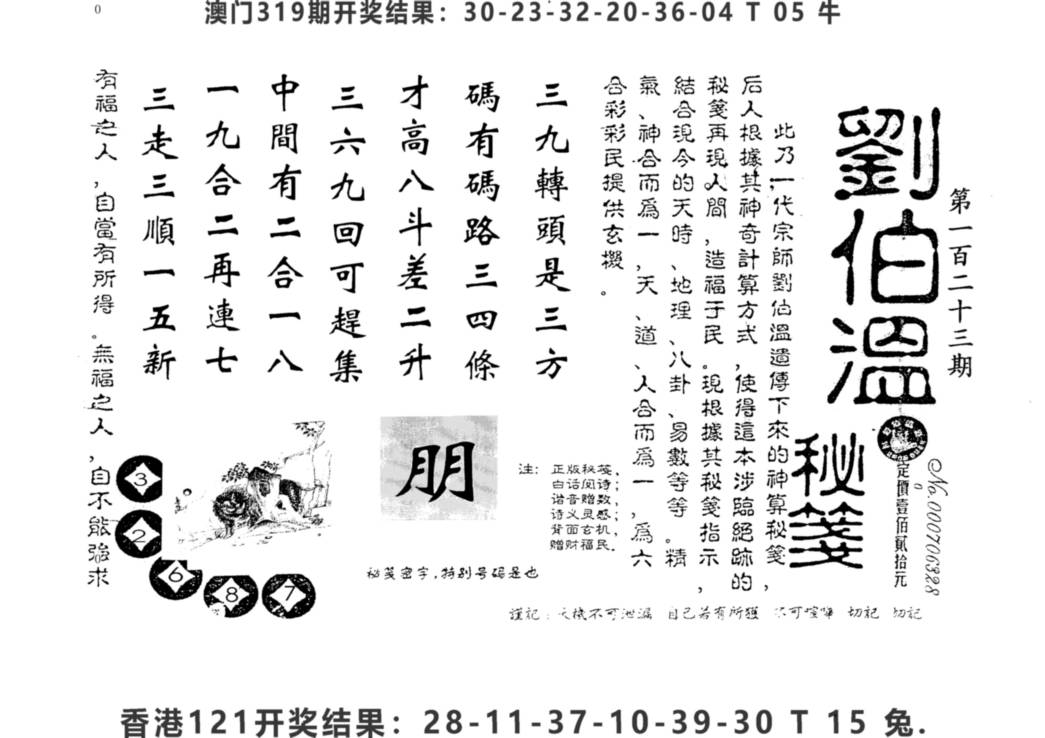 0
澳门319期开奖结果：30-23-32-20-36-04 T 05 牛
第一百二十三期
劉伯溫
秘箋
定價壹佰貳拾元
No.000706328
此乃一代宗師劉伯溫遺傳下來的神算秘箋，
后人根據其神奇計算方式，使得這本涉臨絕跡的
秘箋再現人間，造福于民。現根據其秘箋指示，
結合現今的天時、地理、八卦、易數等等。精
氣、神合而爲一，天、道、人合而爲一，爲六
合彩彩民提供玄機。
三九轉頭是三方
碼有碼路三四條
才高八斗差二升
三六九回可趕集
中間有二合一八
一九合二再連七
三走三順一五新
有福之人，自當有所得。無福之人，自不能強求
朋
注：正版秘笺，
白话阅诗；
谐音赠数，
诗义灵感；
背面玄机，
赠财福民。
秘笺密字，特别号码是也
3
2
6
8
7
謹記：天機不可泄漏 自己若有所獲 不可喧嘩 切記 切記
香港121开奖结果：28-11-37-10-39-30 T 15 兔.